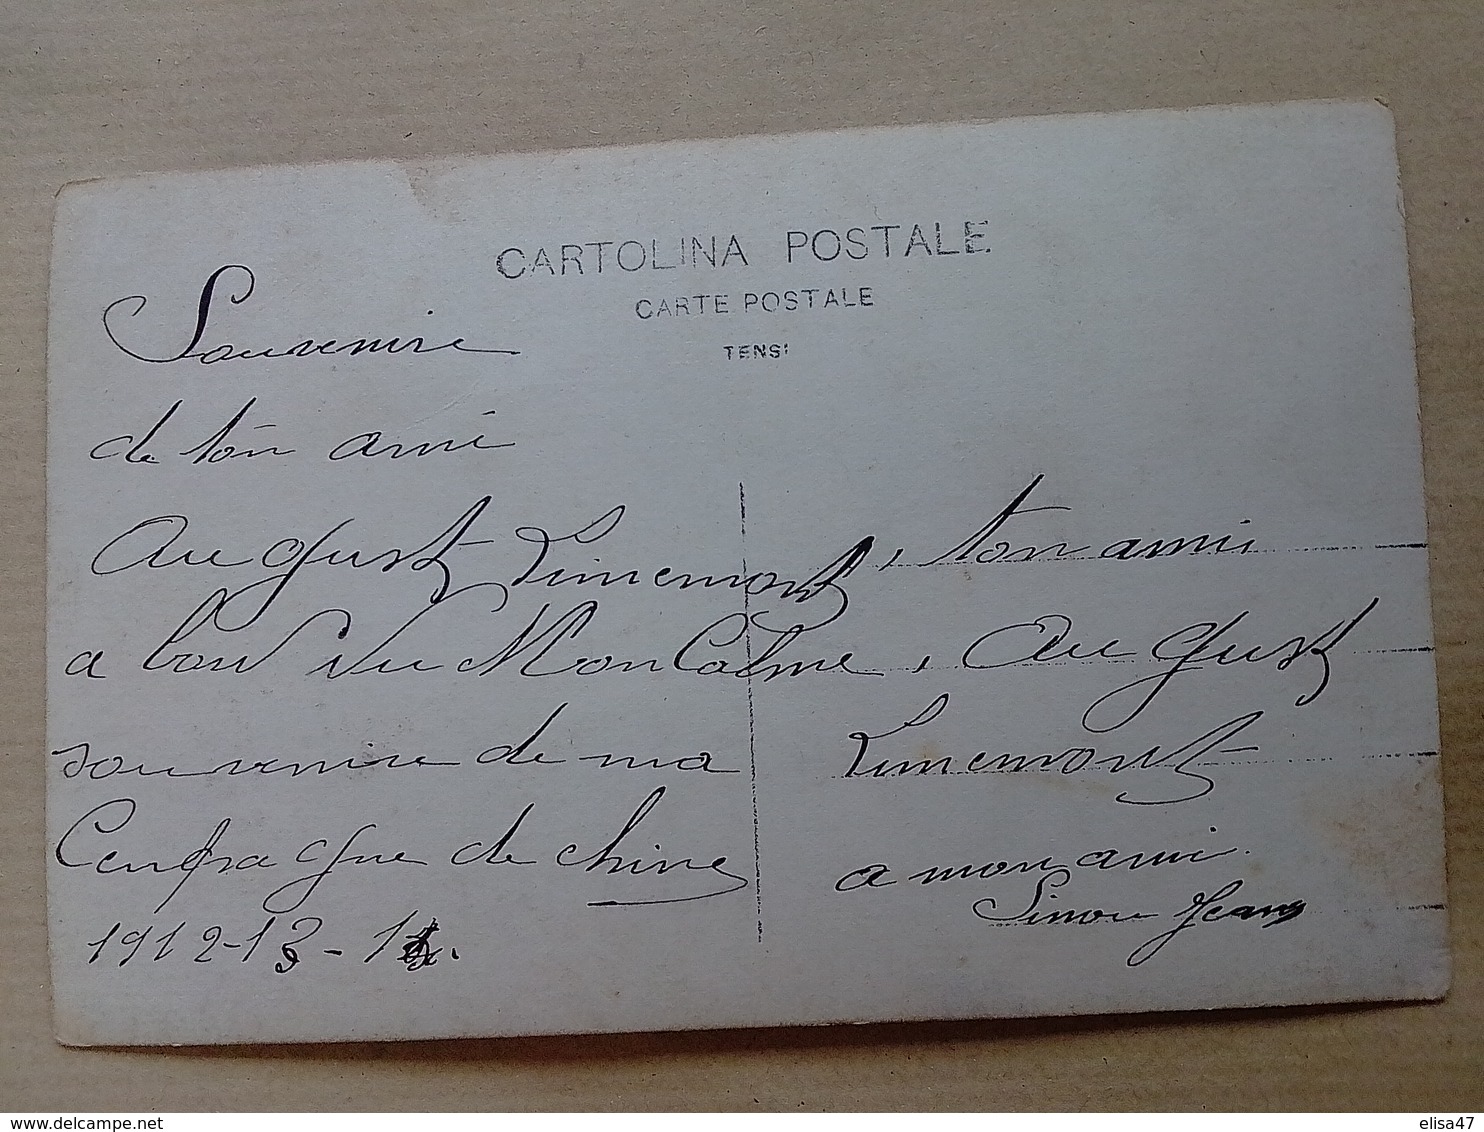 CARTOLINA POSTALE
CARTE POSTALE
TENSI
Souvenire
de ton ami
August Linemont
a bord du MonCalme
souvenire de ma
Canpagne de chine
1912-13-14.
, ton ami
, August
Linemont
a mon ami.
Simon Jean
delcampe.net
elisa47